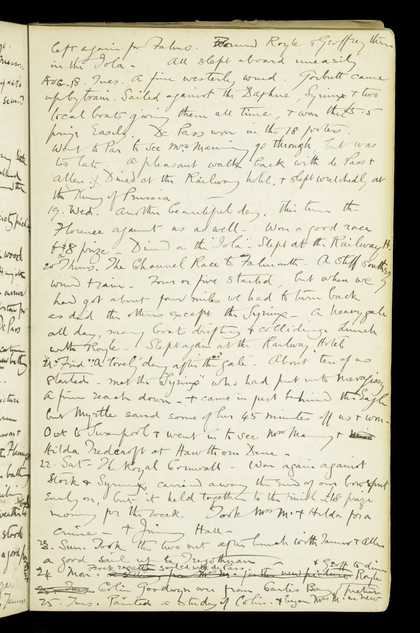 left again for Falmo. Found Royle & Geoffrey there
in the Iola. All slept aboard uneasily
Aug. 18. Tues. A fine westerly wind. Torbutt came
up by train. Sailed against the Daphne, Syrinx & two
local boats giving them all time, & won the £5
prize Easily. De Pass won in the 18 footers.
Went to Par to see Mrs Manning go through but was
too late. A pleasant walk back with de Pass &
Allen. Dined at the Railway hotel, & slept wretchedly at
the King of Prussia
19. Wed. Another beautiful day. This time the
Florence against us as well. Won a good race
£8 prize. Dined on the 'Iola'. Slept at the Railway H.
20 Thurs. The Channel Race to Falmouth. A stiff southerly
wind & rain. Four or five started, but when we
had got about four miles we had to turn back
as did the others except the Syrinx. A heavy gale
all day, many boats drifting & colliding. Lunch
with Royle. Slept again at the Railway Hotel
21 Frid. A lovely day after the gale. About ten of us
started. Met the Syrinx who had put into Mevagissey
A fine reach down & came in just behind the Eagle
but Myrtle saved some of her 45 minutes off us & won.
Out to Swanpool & went in to see Mrs Manning &
Hilda Fredcroft at Hawthorn Dene.
22. Sat. The Royal Cornwall. Won again against
Stork & Syrinx, carried away the end of our bowsprit
Early on, but it held together to the finish £18 prize
money for the week. Took Mrs M. & Hilda for a
cruise & Jimmy Hall
23. Sun. Took the two out after lunch with James & Allen
a good sail up to Tregothnan & Geoff to dinner
24. Mon. Royle
Colin Goodwyn over from Carlis Bay
25. Tues. Painted a study of Colin & began Mrs M. in new
picture